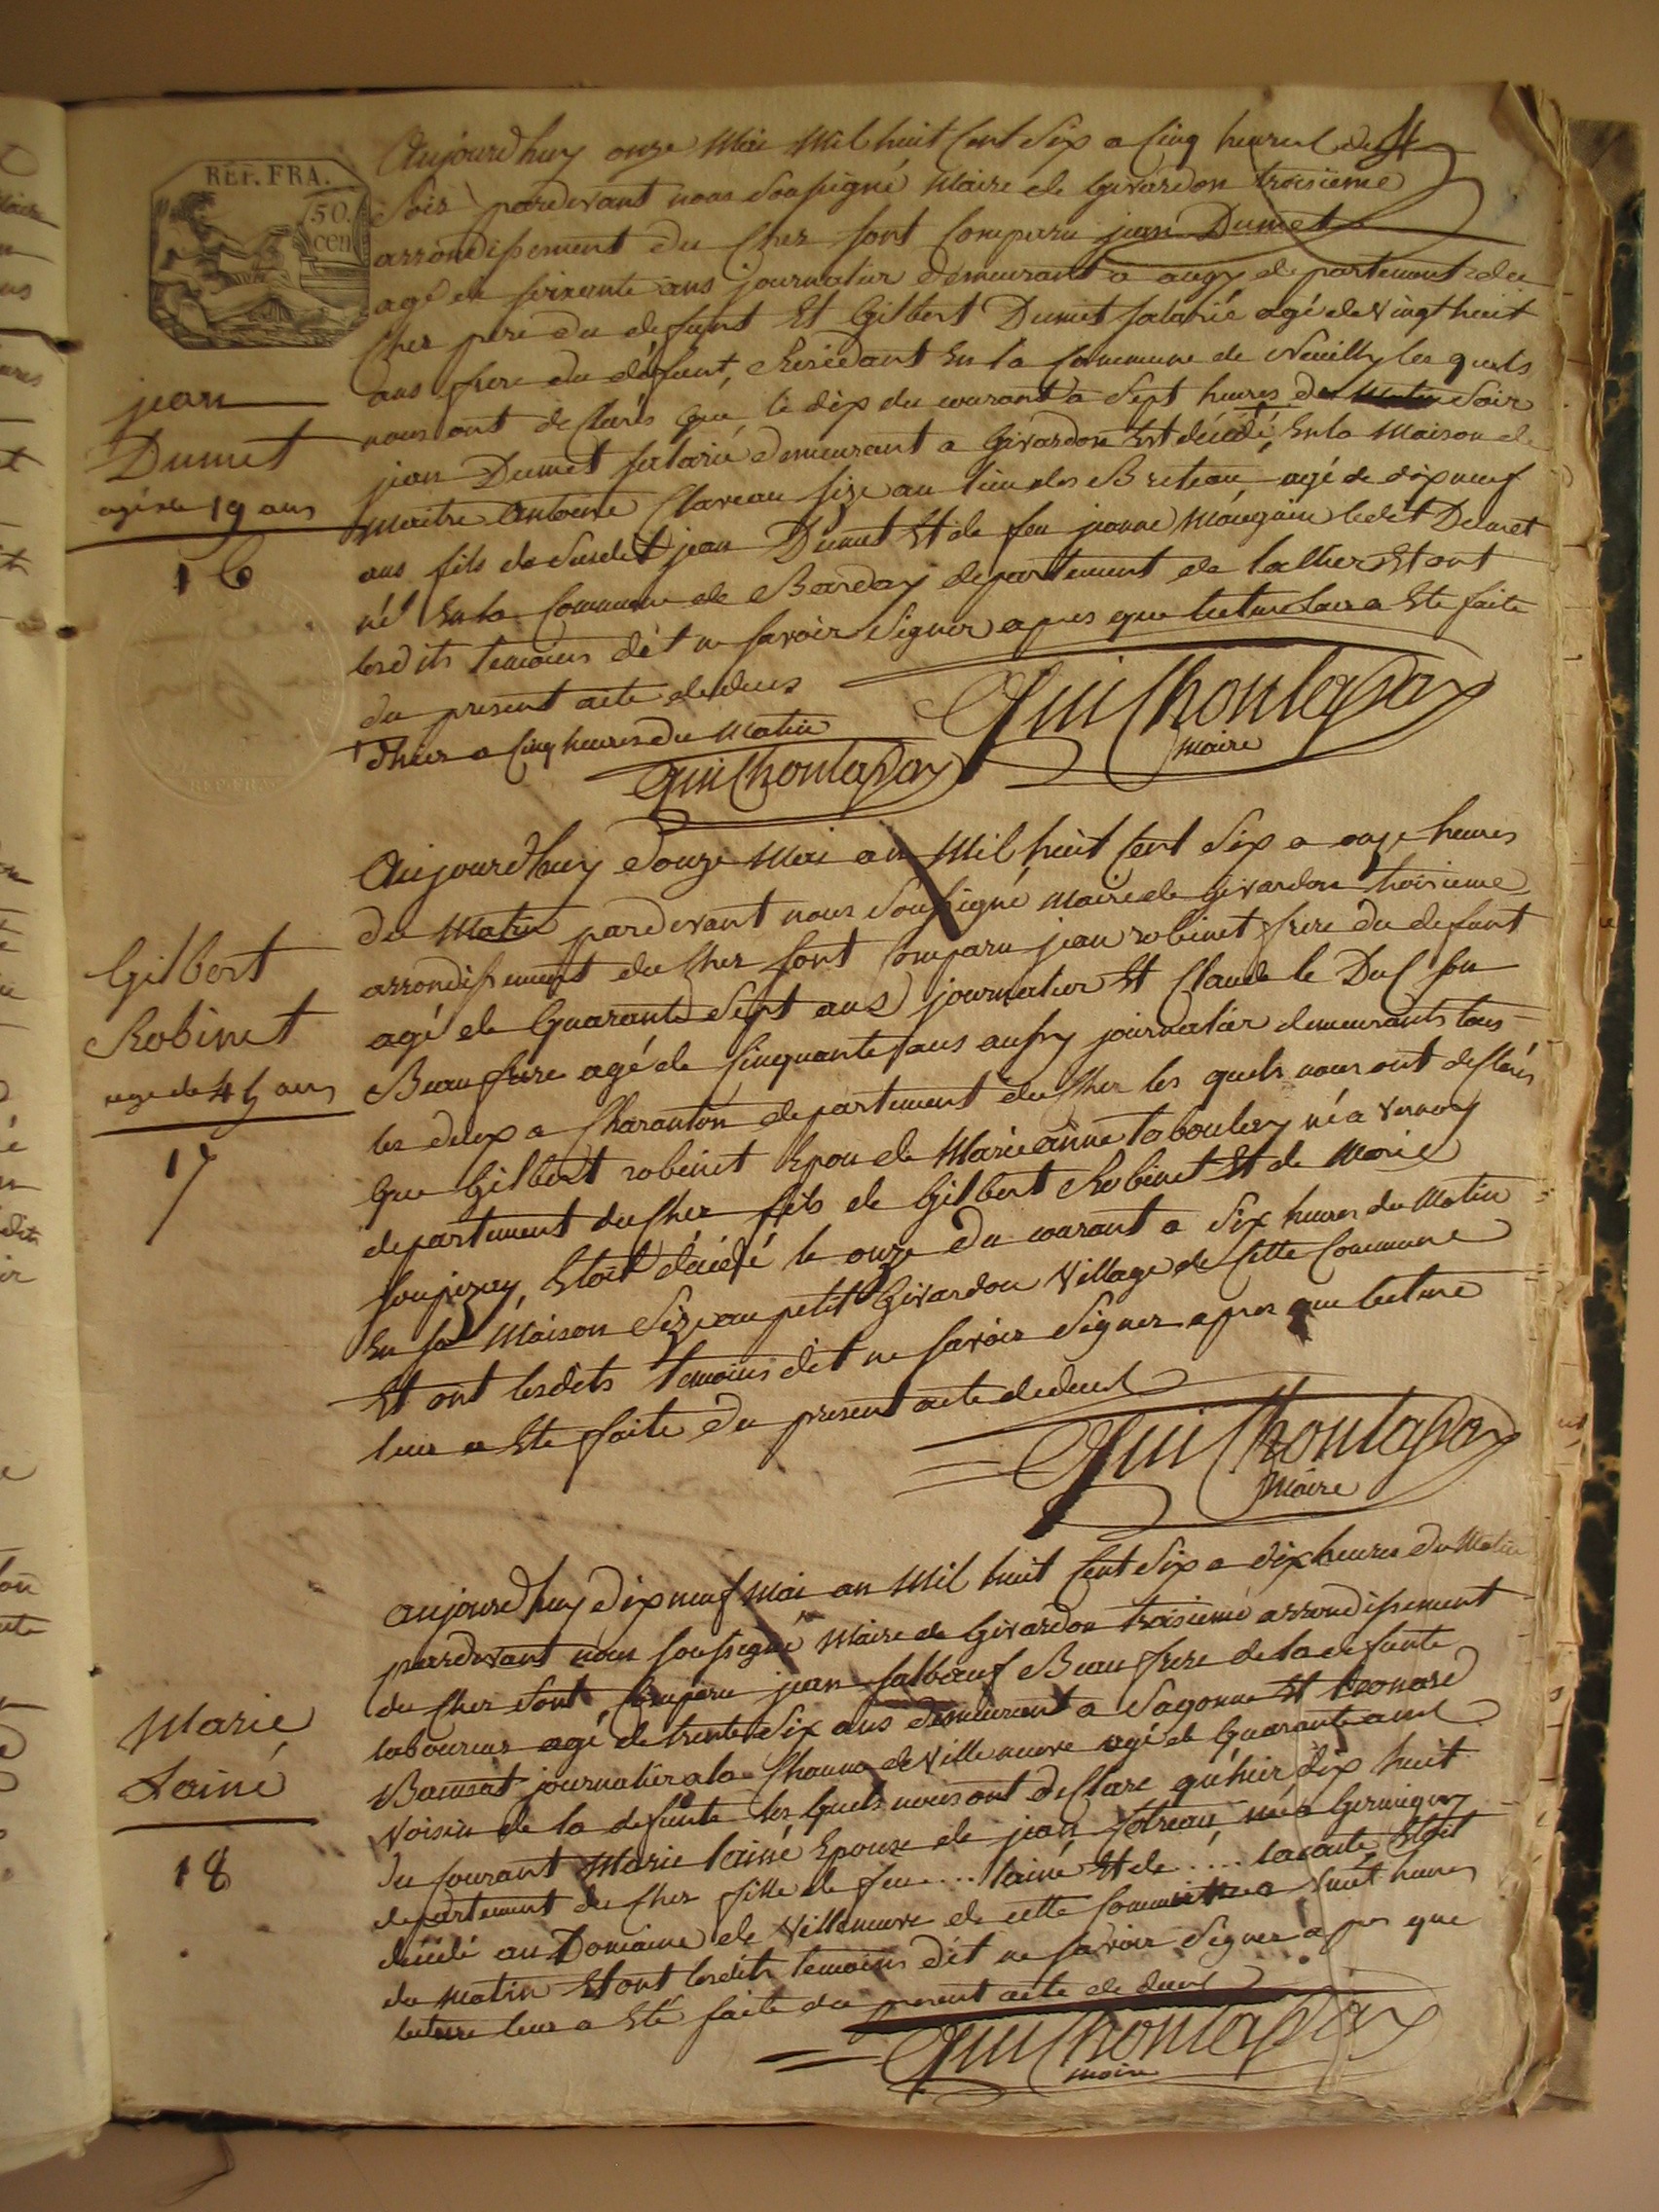 REP. FRA.
50.
cen
Aujourdhuy onze Mai Mil huit Cent Six a Cinq heures du
Soir pardevant nous Soussigné Maire de Givardon troisieme
arrondissement du Cher sont Comparu jean Dumet
agé de soixante ans journalier demeurant a augy departement du
Cher pere du defunt Et Gilbert Dumet salarié agé de Vingt huit
ans frere du défunt, Residant En la Commune de Neuilly les quels
nous ont declarés que le dix du courant a Sept heures du Soir
jean Dumet salarié demeurant a Givardon Est décédé En la Maison de
Maitre Antoine Claveau size au lieu des Breteau agé de dix neuf
ans fils de Susdit jean Dumet Et de feu jeanne Maugain ledit Dumet
né En la Commune de Barday departement de Lallier Et ont
lesdits temoins dit ne savoir Signer apres que lecture leur a Eté faite
du present acte de deces
d'hier a Cinq heures du Matin
Guichontapay
Maire
Guichontapay
jean
Dumet
agé de 19 ans
16
Aujourdhuy douze Mai an Mil huit Cent Six a onze heures
du Matin pardevant nous Soussigné Maire de Givardon troisieme
arrondissement du Cher sont Comparu jean robinet frere du defunt
agé de Quarante Sept ans journalier Et Claude le Duc son
Beaufrere agé de Cinquante ans aussy journalier demeurants tous
les deux a Charanton departement du Cher les quels nous ont declarés
que Gilbert robinet Epou de Marie anne tabouley né a Vernay
departement du Cher fils de Gilbert Robinet Et de Marie
Soupizay, Etoit décédé le onze du courant a Six heures du Matin
En sa Maison Size au petit Givardon Village de Cette Commune
Et ont lesdits temoins dit ne savoir Signer apres que lecture
leur a Eté faite du present acte de deces
Guichontapay
Maire
Gilbert
Robinet
age de 45 ans
17
aujourdhuy dix neuf Mai an Mil huit Cent Six a dix heures du Matin
pardevant nous soussigné Maire de Givardon troisieme arrondissement
du Cher Sont Comparu jean salbœuf Beau frere de la defunte
laboureur agé de trente Six ans demeurant a Sagonne Et leonard
journalier a la Chaume de Villeneuve agé de Quarante ans
Voisin de la defunte les Quels nous ont declaré qu'hier dix huit
du Courant Marie lainé Epouse de jean née a Germigny
departement du Cher fille de feu .... lainé Et de .... lacaute, Etoit
décédé au Domaine de Villeneuve de cette Commune a huit heures
du Matin Et ont lesdits temoins dit ne savoir Signer apres que
lecture leur a Eté faite du present acte de deces
Guichontapay
Maire
Marie
Lainé
18